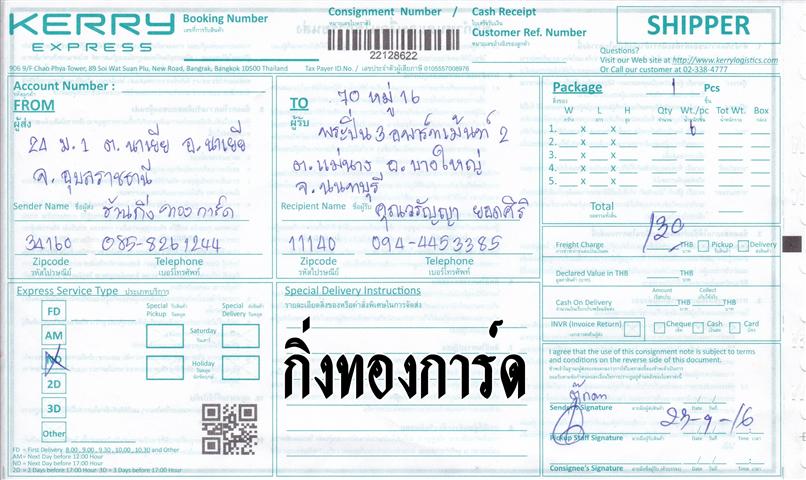 KERRY
EXPRESS
Booking Number
เลขที่การรับสินค้า
Consignment Number /
หมายเลขใบตราส่ง
22128622
Cash Receipt
ใบเสร็จรับเงิน
Customer Ref. Number
หมายเลขอ้างอิงของลูกค้า
SHIPPER
Questions?
Visit our Web site at http://www.kerrylogistics.com
Or Call our customer at 02-338-4777
906 9/F Chao Phya Tower, 89 Soi Wat Suan Plu, New Road, Bangrak, Bangkok 10500 Thailand
Tax Payer ID No. / เลขประจำตัวผู้เสียภาษี 0105557008976
Account Number :
FROM
ผู้ส่ง
24 ม.1 ต.นาเยีย อ.นาเยีย
จ.อุบลราชธานี
Sender Name ชื่อผู้ส่ง ร้านกิ่งทองการ์ด
34160 085-8261244
Zipcode Telephone
รหัสไปรษณีย์ เบอร์โทรศัพท์
TO
ผู้รับ
70 หมู่ 16
พระปิ่น 3 อพาร์ทเม้นท์ 2
ต.แม่นาง อ.บางใหญ่
จ.นนทบุรี
Recipient Name ชื่อผู้รับ คุณวรัญญา ยอดศิริ
11140 094-4453385
Zipcode Telephone
รหัสไปรษณีย์ เบอร์โทรศัพท์
Package 1 Pcs
W L H Qty Wt./pc Tot Wt. Box
1. x x 6
2. x x
3. x x
4. x x
5. x x
Total
Freight Charge 130 THB Pickup Delivery
Declared Value in THB THB
Cash On Delivery Amount Collect THB THB
INVR (Invoice Return) Cheque Cash Card
I agree that the use of this consignment note is subject to terms
and conditions on the reverse side of this document.
Sender's Signature Date
27-9-16
Pickup Staff Signature Date Time
Consignee's Signature Date Time
Express Service Type ประเภทบริการ
Special Pickup
Special Delivery
FD
AM
ND
2D
3D
Other
Saturday
วันเสาร์
Holiday
วันหยุด
FD = First Delivery 8.00, 9.00, 9.30, 10.00, 10.30 and Other
AM= Next Day before 12:00 Hour
ND = Next Day before 17:00 Hour
2D = 2 Days before 17:00 Hour 3D = 3 Days before 17:00 Hour
Special Delivery Instructions
รายละเอียดสิ่งของหรือคำสั่งพิเศษในการจัดส่ง
กิ่งทองการ์ด